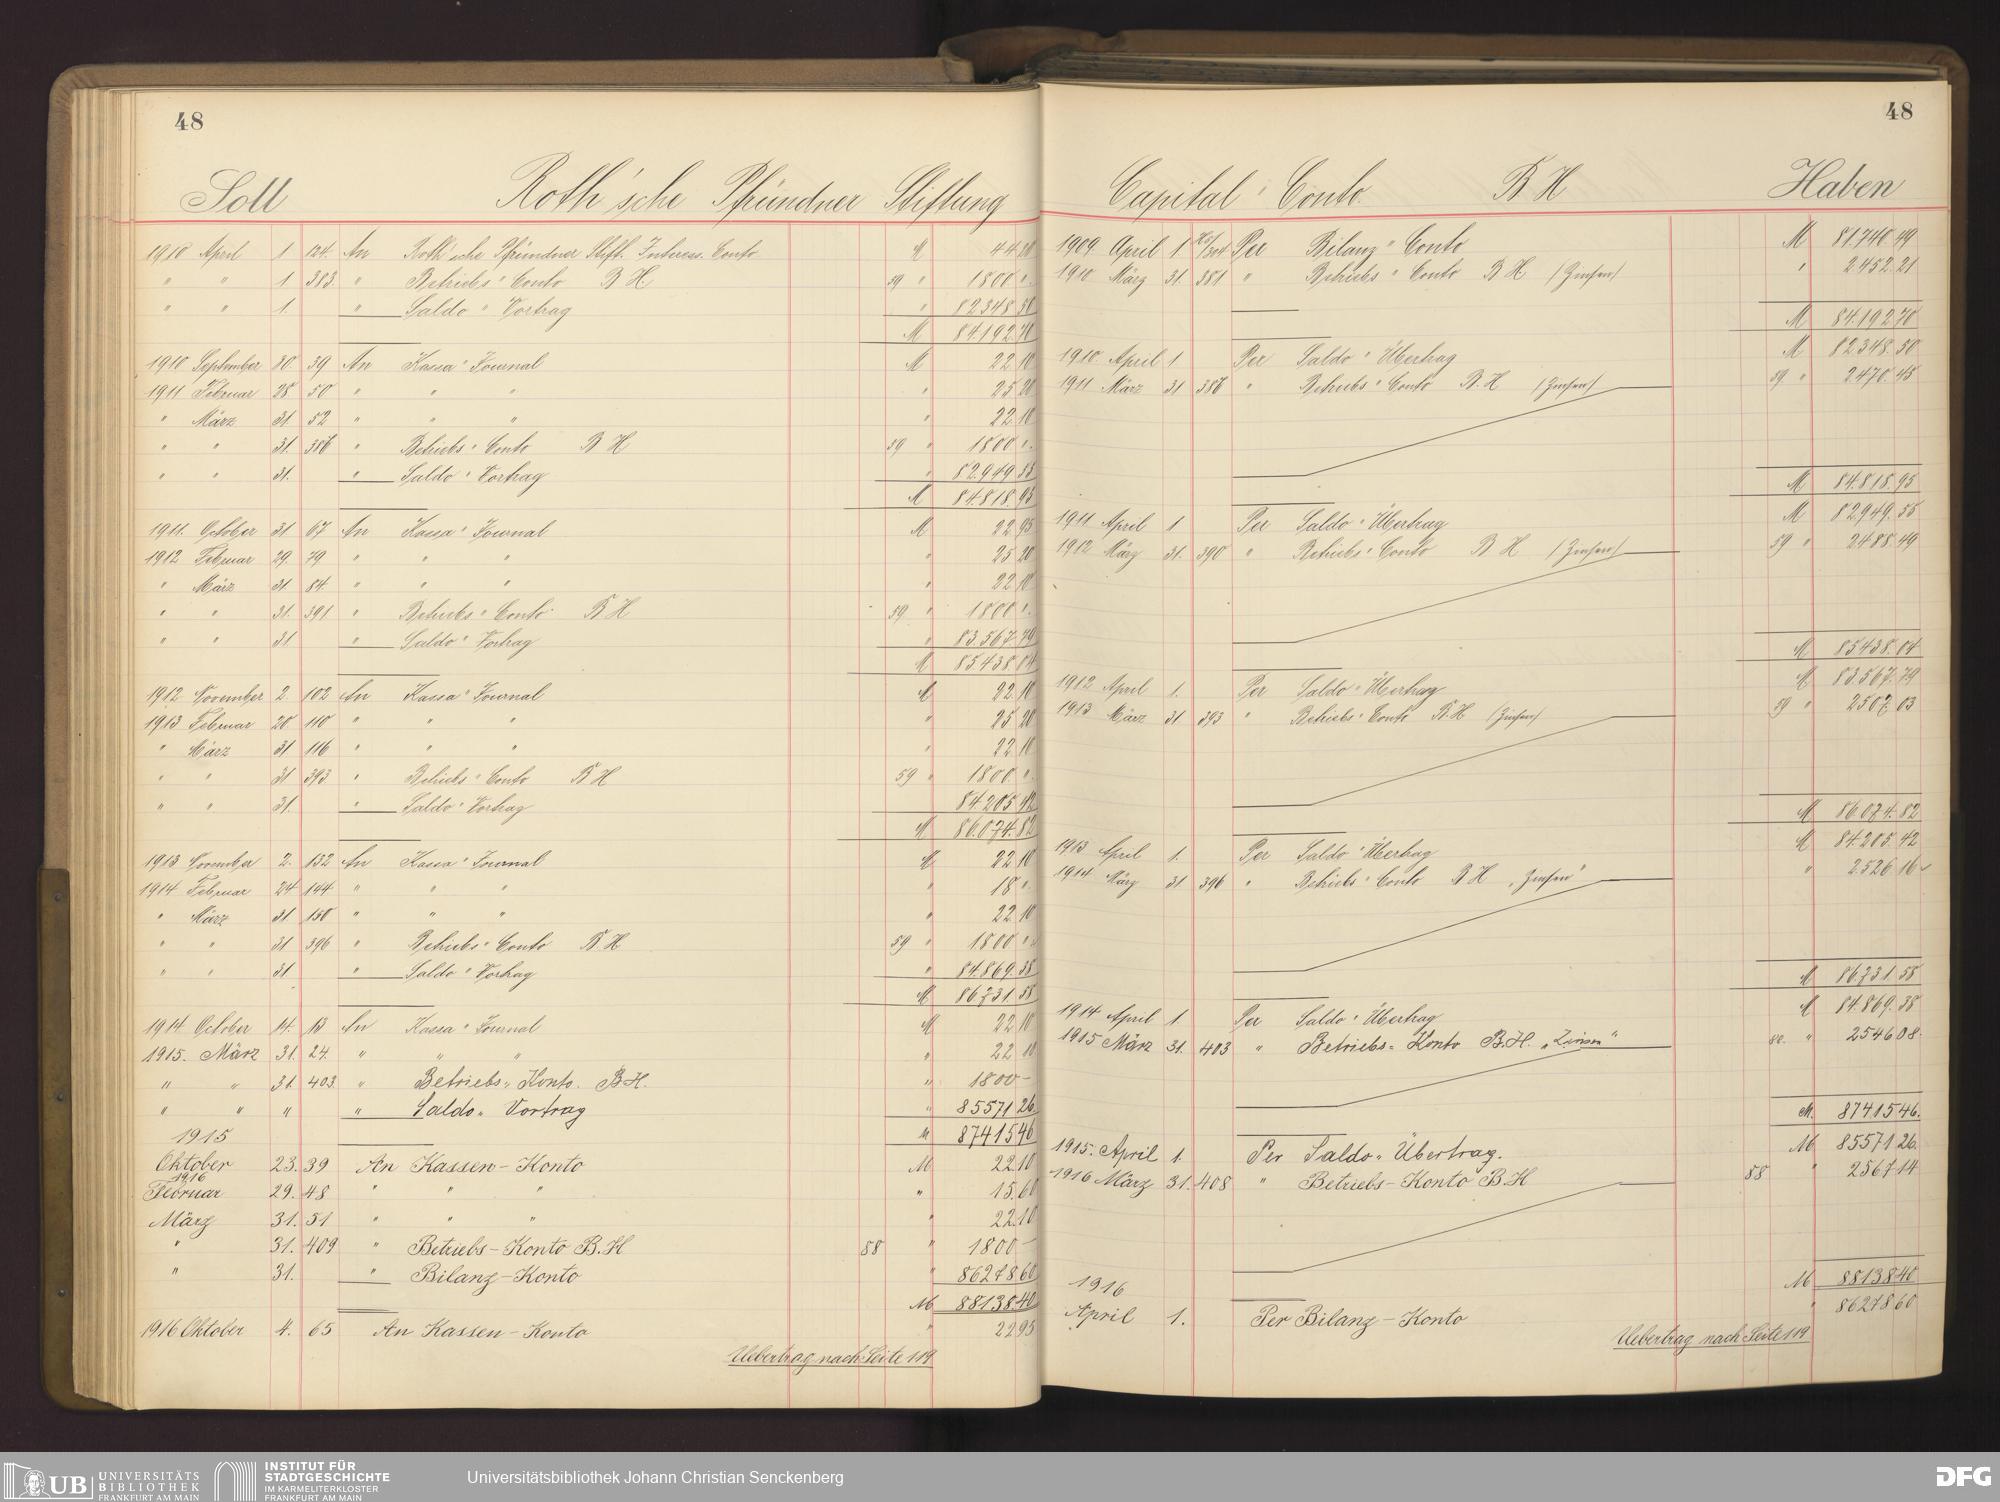 48
Soll Roth'sche Pfründner Stiftung
1910 April 1 124. An Roth'sche Pfründner Stift. Interess. Conto M 44.20
" " 1 383. " Betriebs" Conto B H. 59 " 1800 ".
" " 1. " Saldo " Vortrag " 82348.50
M 84.192.70
1910 September 30. 39 An Kassa" Journal M 22.10
1911 Februar 28. 50 " " " " 25.20
" März 31. 52 " " " " 22.10
" " 31. 386 " Betriebs" Conto B H 59 " 1800 ".
" " 31. " Saldo " Vortrag " 82.949.55
M 84.818.95
1911. October 31 67 An Kassa" Journal M 22.95
1912 Februar 29. 79 " " " " 25.20
" März 31. 84. " " " " 22.10
" " 31. 391 " Betriebs" Conto B H 59 " 1800 ".
" " 31 " Saldo" Vortrag " 83.567.79
M 85438.04
1912 November 2. 102 An Kassa" Journal M 22.10
1913 Februar 28. 110 " " " " 25.20
" März 31. 116 " " " " 22.10
" " 31 393 " Betriebs" Conto B H 59 " 1800. ".
" " 31. " Saldo" Vortrag 84.205.42
M 86.074.82
1913 November 2. 132 An Kassa" Journal M 22.10
1914 Februar 24 144 " " " " 18 ".
" März 31 150 " " " " 22.10
" " 31 396 " Betriebs" Conto B. H 59 " 1800 ".
" " 31 " Saldo " Vortrag " 84.869.38
M 86731.58
1914 October 14. 13 An Kassa" Journal M 22.10
1915. März 31. 24. " " " " 22 10
" " 31. 403 " Betriebs" Konto. B.H. " 1800 –
" " " " Saldo" Vortrag " 85571 26
1915 M 87415 46
Oktober 23. 39 An Kassen-Konto M 22.10
1916
Februar 29. 48 " " " " 15.60
März 31. 51 " " " " 22.10
" 31. 409 " Betriebs-Konto B.H 88 " 1800 –
" 31. " Bilanz-Konto " 86278 60
M 88138.40
1916 Oktober 4. 65 An Kassen-Konto " 2295
Uebertrag nach Seite 119
48
Capital " Conto. B H Haben
1909. April 1 Per Bilanz" Conto M 81.740.49
1910 März 31. 381 " Betriebs " Conto B H (Zinsen) " 2452.21
M 84.192.70
1910. April 1 Per Saldo " Übertrag M 82348.50
1911 März 31 386 " Betriebs" Conto B. H (Zinsen) 59 " 2.470.45
M 84.818.95
1911 April 1 Per Saldo " Übertrag M 82949.55
1912 März 31. 390 " Betriebs" Conto B H (Zinsen) 59 " 2488.49
M 85438.04
1912 April 1. Per Saldo" Übertrag M 83567.79
1913 März 31 393 " Betriebs" Conto B. H (Zinsen) 59 " 2507.03
M 86074.82
1913 April 1. Per Saldo" Übertrag M 84.205.42
1914 März 31 396 " Betriebs" Conto B H „Zinsen" " 2526 16
M 86731.58
1914 April 1. Per Saldo" Übertrag M 84.869.38
1915 März 31. 403 " Betriebs= Konto B.H. „Zinsen" 88. " 2546 08.
M. 87415 46.
1915. April 1. Per Saldo" Übertrag. M 85571 26.
1916 März 31. 408 " Betriebs-Konto B.H 88 " 2567 14
M 88138 40
1916
April 1. Per Bilanz-Konto " 86278 60
Uebertrag nach Seite 119
UB UNIVERSITÄTS
BIBLIOTHEK
FRANKFURT AM MAIN
INSTITUT FÜR
STADTGESCHICHTE
IM KARMELITERKLOSTER
FRANKFURT AM MAIN
Universitätsbibliothek Johann Christian Senckenberg
DFG